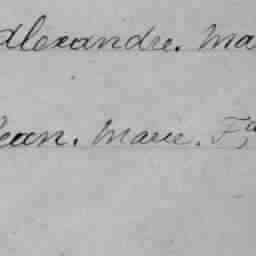 Alexandre. Ma
Jean. Marie. F